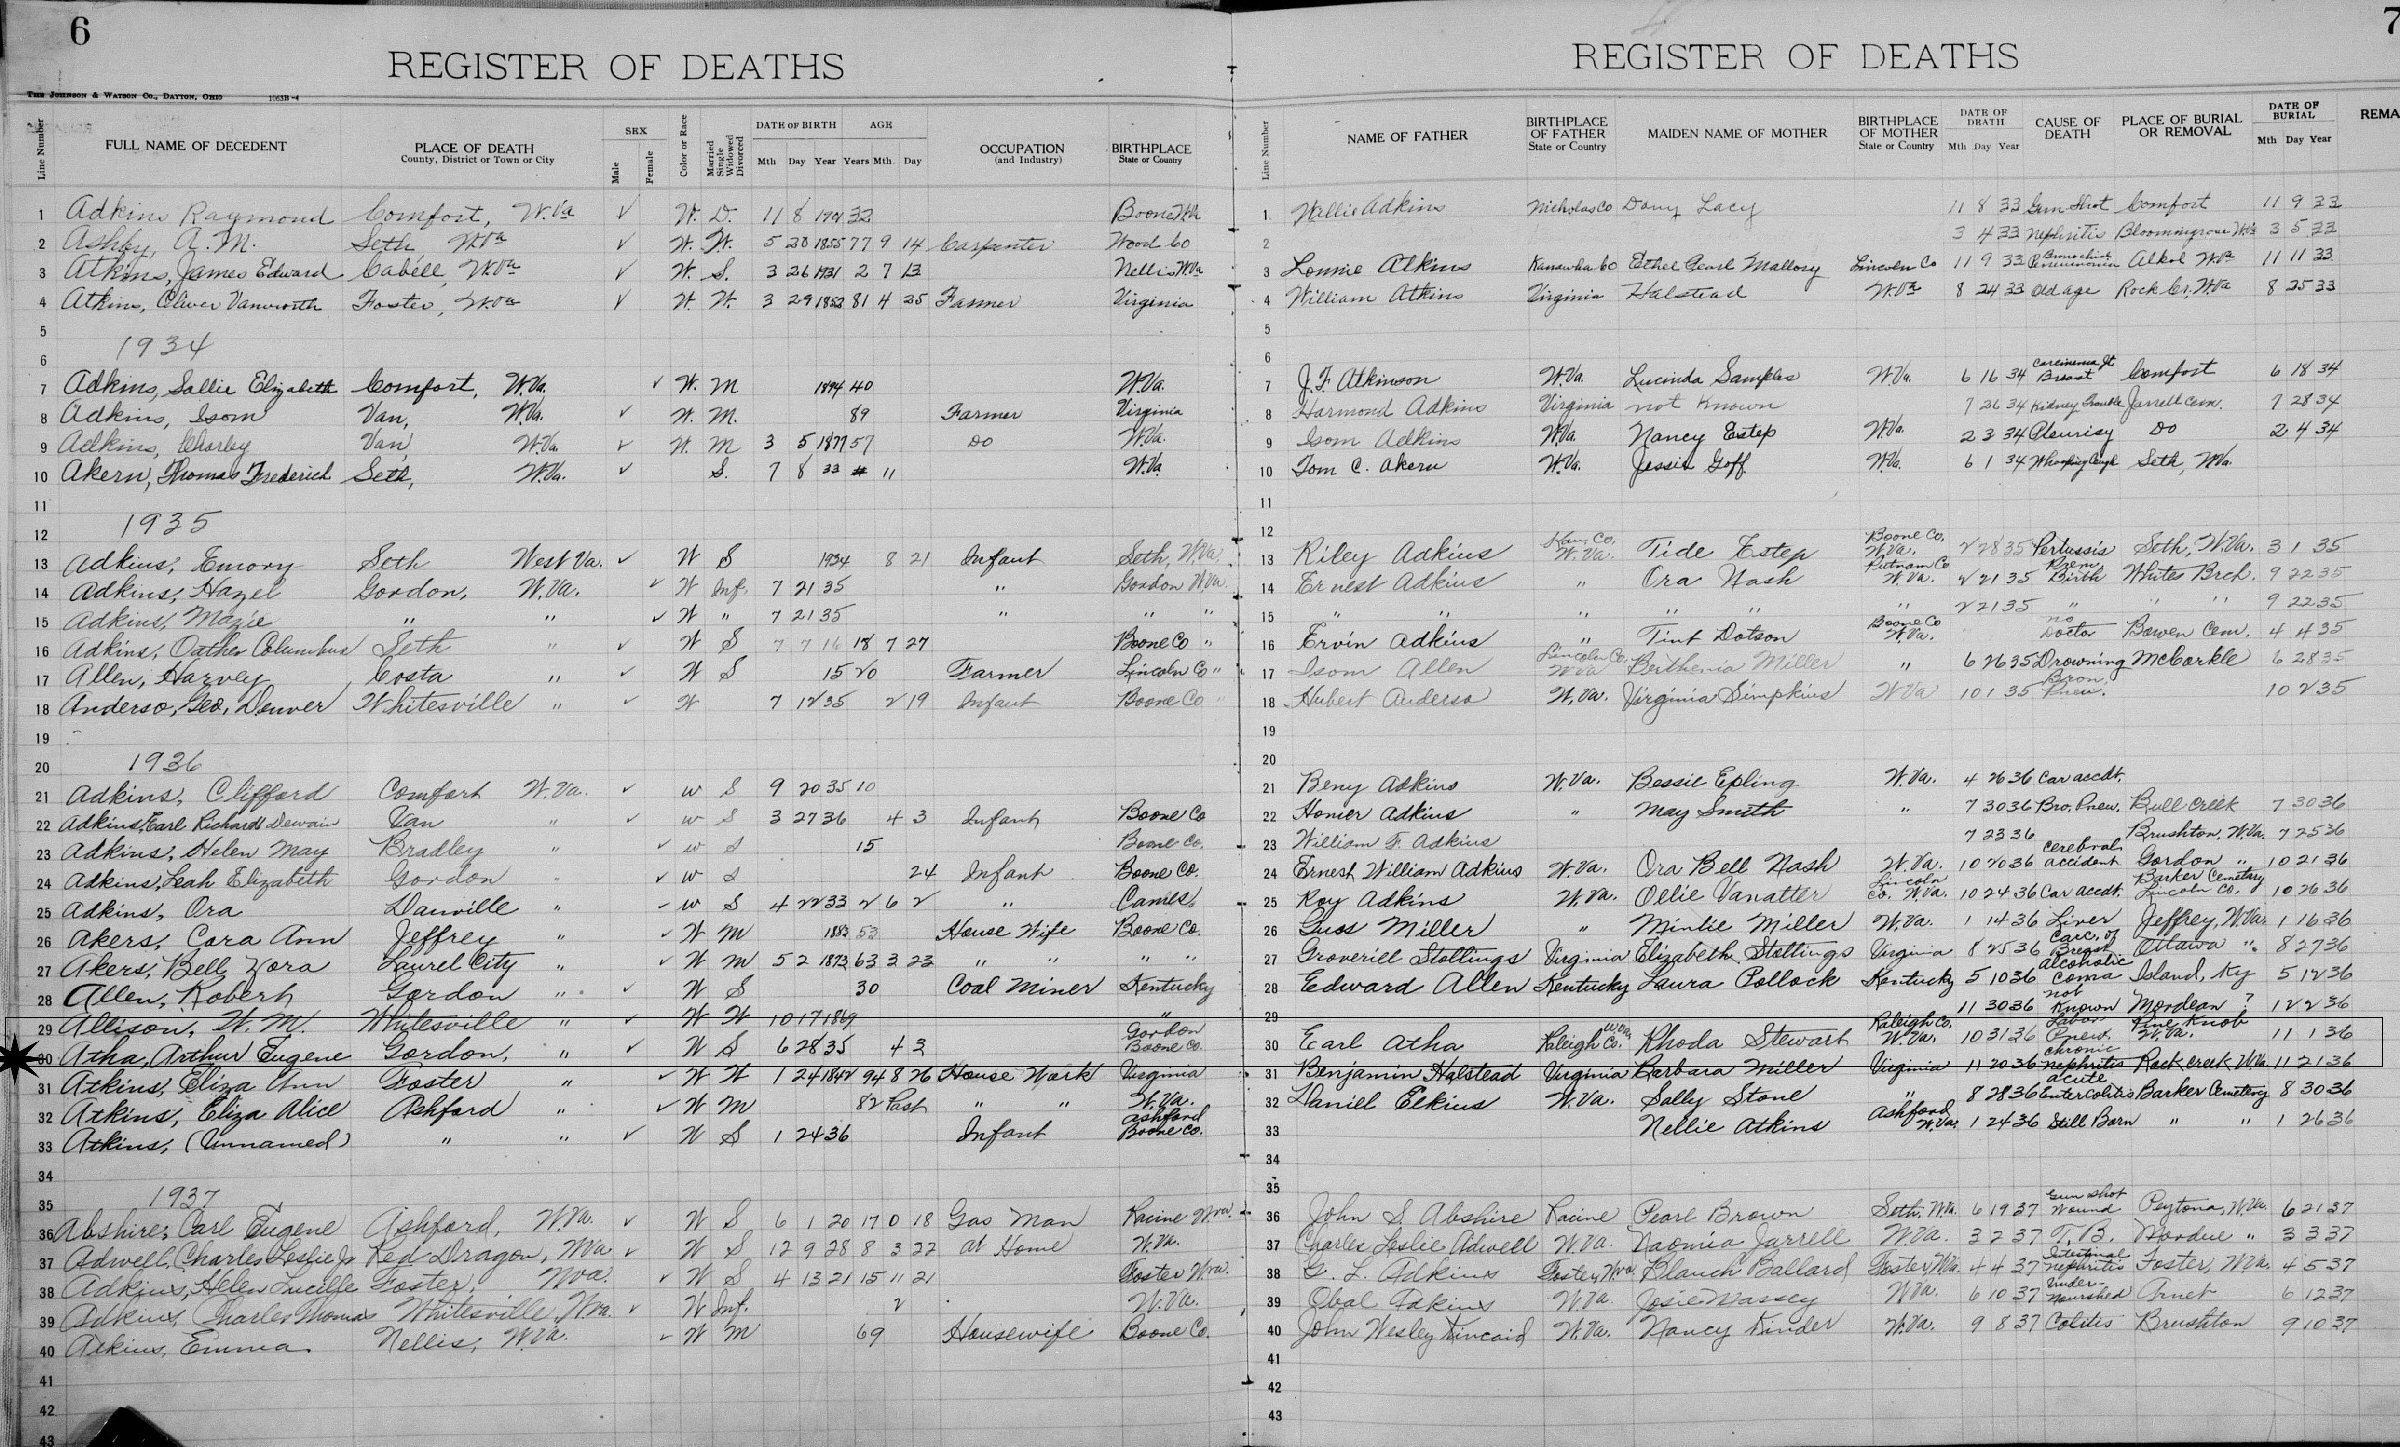 6
REGISTER OF DEATHS
THE JOHNSON & WATSON CO., DAYTON, OHIO 1063B-4
Line Number FULL NAME OF DECEDENT PLACE OF DEATH County, District or Town or City SEX Male Female Color or Race Married Single Widowed Divorced DATE OF BIRTH Mth Day Year AGE Years Mth. Day OCCUPATION (and Industry) BIRTHPLACE State or Country
1 Adkins Raymond Comfort, W.Va ✓ W. D. 11 8 32 Boone W.Va
2 Ashby, A. M. Seth W.Va ✓ W. W. 5 20 1855 77 9 14 Carpenter Wood Co
3 Atkins, James Edward Cabell, W.Va ✓ W. S. 3 26 1931 2 7 13 Nellis W.Va
4 Atkins, Oliver Vanworth Foster, W.Va ✓ W. W. 3 29 1852 81 4 25 Farmer Virginia
5
6 1934
7 Adkins, Sallie Elizabeth Comfort, W.Va. ✓ W. M 1894 40 W.Va.
8 Adkins, Isom Van, W.Va. ✓ W. M. 89 Farmer Virginia
9 Adkins, Charley Van, W.Va. ✓ W. M 3 5 1877 57 Do W.Va.
10 Akern, Thomas Frederich Seth, W.Va. ✓ S. 7 8 33 11 W.Va.
11
12 1935
13 Adkins, Emory Seth West Va. ✓ W S 1934 8 21 Infant Seth, W.Va.
14 Adkins, Hazel Gordon, W.Va. ✓ W Inf. 7 21 35 " Gordon W.Va.
15 Adkins, Mazie " " ✓ W " 7 21 35 " " "
16 Adkins, Oather Columbus Seth " ✓ W S 7 7 16 18 7 27 Boone Co "
17 Allen, Harvey Costa " ✓ W S 15 20 Farmer Lincoln Co "
18 Anderso, Geo. Denver Whitesville " ✓ W 7 12 35 2 19 Infant Boone Co "
19
20 1936
21 Adkins, Clifford Comfort W.Va. ✓ w S 9 20 35 10
22 Adkins, Earl Richard Dewain Van " ✓ w S 3 27 36 4 3 Infant Boone Co
23 Adkins, Helen May Bradley " ✓ w S 15 Boone Co.
24 Adkins, Leah Elizabeth Gordon " ✓ w S 24 Infant Boone Co.
25 Adkins, Ora Danville " ✓ w S 4 22 33 2 6 2 "
26 Akers, Cora Ann Jeffrey " ✓ W M 1883 53 House Wife Boone Co.
27 Akers, Bell Zora Laurel City " ✓ W M 5 2 1873 63 3 23 " " " "
28 Allen, Robert Gordon " ✓ W S 30 Coal Miner Kentucky
29 Allison, W. M. Whitesville " ✓ W W 10 17 1869 "
30 Atha, Arthur Eugene Gordon, " ✓ W S 6 28 35 4 3 Gordon Boone Co.
31 Atkins, Eliza Ann Foster " ✓ W W 1 24 1842 94 8 26 House Work Virginia
32 Atkins, Eliza Alice Ashford " ✓ W M 82 Past " " W.Va.
33 Atkins, (Unnamed) " " ✓ W S 1 24 36 Infant Ashford Boone Co.
34
35 1937
36 Abshire, Carl Eugene Ashford, W.Va. ✓ W S 6 1 20 17 0 18 Gas Man Racine W.Va.
37 Adwell, Charles Leslie Jr Red Dragon, W.Va ✓ W S 12 9 28 8 3 22 At Home W.Va.
38 Adkins, Helen Lucille Foster, W.Va. ✓ W S 4 13 21 15 11 21 Foster W.Va.
39 Adkins, Charles Thomas Whitesville, W.Va. ✓ W Inf. 2 W.Va.
40 Adkins, Emma Nellis, W.Va. ✓ W M 69 Housewife Boone Co.
41
42
43
7
REGISTER OF DEATHS
Line Number NAME OF FATHER BIRTHPLACE OF FATHER State or Country MAIDEN NAME OF MOTHER BIRTHPLACE OF MOTHER State or Country DATE OF DEATH Mth Day Year CAUSE OF DEATH PLACE OF BURIAL OR REMOVAL DATE OF BURIAL Mth Day Year REMA
1 Willie Adkins Nicholas Co Lacy 11 8 33 Gun Shot Comfort 11 9 33
2 3 4 33 Nephritis Bloomingrove W.Va 3 5 33
3 Lonnie Atkins Kanawha Co Ethel Pearl Mallory Lincoln Co 11 9 33 Alkol W.Va 11 11 33
4 William Atkins Virginia Halstead W.Va 8 24 33 Old age Rock Cr. W.Va 8 25 33
5
6
7 J. F. Atkinson W.Va. Lucinda Samples W.Va. 6 16 34 Carcinema Rt Breast Comfort 6 18 34
8 Harmond Adkins Virginia not Known 7 26 34 Kidney Trouble Jarrell Cem. 7 28 34
9 Isom Adkins W.Va. Nancy Estep W.Va. 2 3 34 Pleurisy Do 2 4 34
10 Tom C. Akern W.Va. Jessie Goff W.Va. 6 1 34 Whooping Cough Seth, W.Va.
11
12
13 Riley Adkins Kan. Co. W.Va. Tide Estep Boone Co. W.Va. 2 28 35 Pertussis Seth, W.Va. 3 1 35
14 Ernest Adkins " Ora Nash Putnam Co W.Va. 2 21 35 Prem. Birth Whites Brch. 9 22 35
15 " " " " " " 2 21 35 " " " 9 22 35
16 Ervin Adkins " Tint Dotson Boone Co W.Va. no Doctor Bowen Cem. 4 4 35
17 Isom Allen Lincoln Co. W.Va Berthenia Miller " 6 26 35 Drowning McCorkle 6 28 35
18 Hubert Anderso W.Va. Virginia Simpkins W.Va 10 1 35 Bron. Pneu. 10 2 35
19
20
21 Beny Adkins W.Va. Bessie Epling W.Va. 4 26 36 Car accdt.
22 Homer Adkins " May Smith " 7 30 36 Bro. Pneu. Bull Creek 7 30 36
23 William F. Adkins 7 23 36 Brushton, W.Va. 7 25 36
24 Ernest William Adkins W.Va. Ora Bell Nash W.Va. 10 20 36 Cerebral accident Gordon " 10 21 36
25 Roy Adkins W.Va. Ollie Vanatter Lincoln Co. W.Va. 10 24 36 Car accdt. Barker Cemetery Lincoln Co. 10 26 36
26 Guss Miller " Mintie Miller W.Va. 1 14 36 Liver Jeffrey, W.Va. 1 16 36
27 Groveriel Stollings Virginia Elizabeth Stollings Virginia 8 25 36 Carc. of Breast Ottawa " 8 27 36
28 Edward Allen Kentucky Laura Pollock Kentucky 5 10 36 Alcoholic Coma Island, Ky 5 12 36
29 11 30 36 not Known Mordean ? 12 2 36
30 Earl Atha Raleigh Co. W.Va. Rhoda Stewart Raleigh Co. W.Va. 10 31 36 Labor Pneu. Pine Knob W.Va. 11 1 36
31 Benjamin Halstead Virginia Barbara Miller Virginia 11 20 36 Chronic nephritis Rock Creek W.Va. 11 21 36
32 Daniel Elkins W.Va. Sally Stone " 8 28 36 acute Entercolitis Barker Cemetery 8 30 36
33 Nellie Atkins Ashford W.Va. 1 24 36 Still Born " " 1 26 36
34
35
36 John S. Abshire Racine Pearl Brown Seth, W.Va. 6 19 37 Gun Shot Wound Peytona, W.Va. 6 21 37
37 Charles Leslie Adwell W.Va. Naomia Jarrell W.Va. 3 2 37 T.B. " 3 3 37
38 G. L. Adkins Foster, W.Va Blanch Ballard Foster W.Va. 4 4 37 Intestinal nephritis Foster, W.Va. 4 5 37
39 Obal W.Va. Josie Massey W.Va. 6 10 37 Under-nourished Arnet 6 12 37
40 John Wesley Kincaid W.Va. Nancy Kinder W.Va. 9 8 37 Colitis Brushton 9 10 37
41
42
43